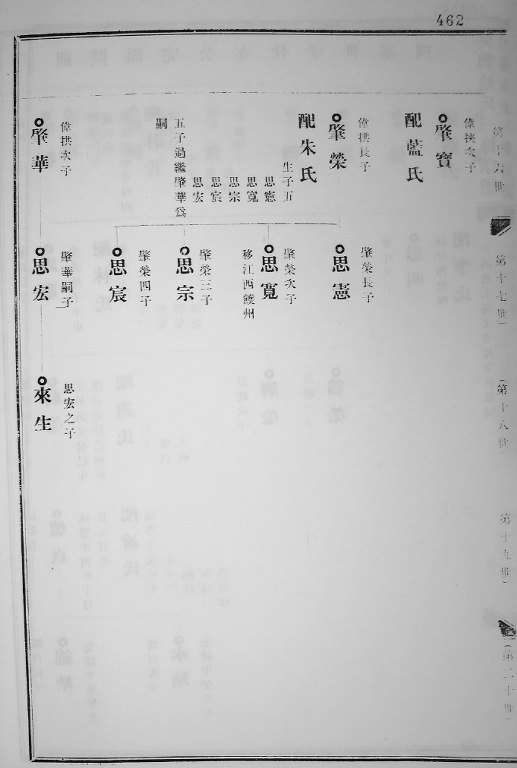 462
第十六世
偉挾次子
肇寶
配藍氏
偉拱長子
肇榮
配朱氏
生子五
思憲
思寬
思宗
思宸
思宏
五子過繼肇華爲
嗣
偉拱次子
肇華
第十七世
肇榮長子
思憲
肇榮次子
思寬
移江西饒州
肇榮三子
思宗
肇榮四子
思宸
肇華嗣子
思宏
第十八世
思宏之子
來生
第十九世
第二十世